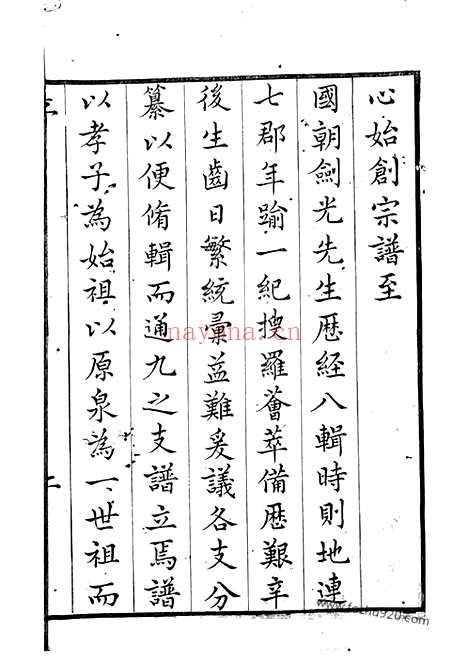 心始創宗譜至
國朝劍光先生歷經八輯時則地連
七郡年踰一紀搜羅薈萃備歷艱辛
後生齒日繁統彙益難爰議各支分
纂以便脩輯而通九之支譜立焉譜
以孝子為始祖以原泉為一世祖而
nayona.cn